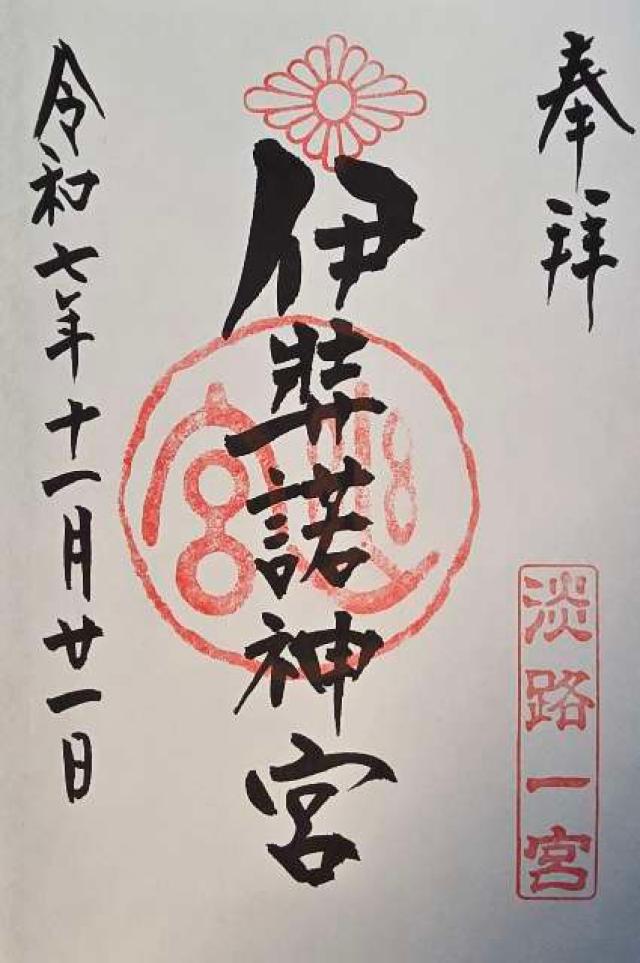 奉拝
淡路一宮
伊弉諾神宮
令和七年十一月廿一日